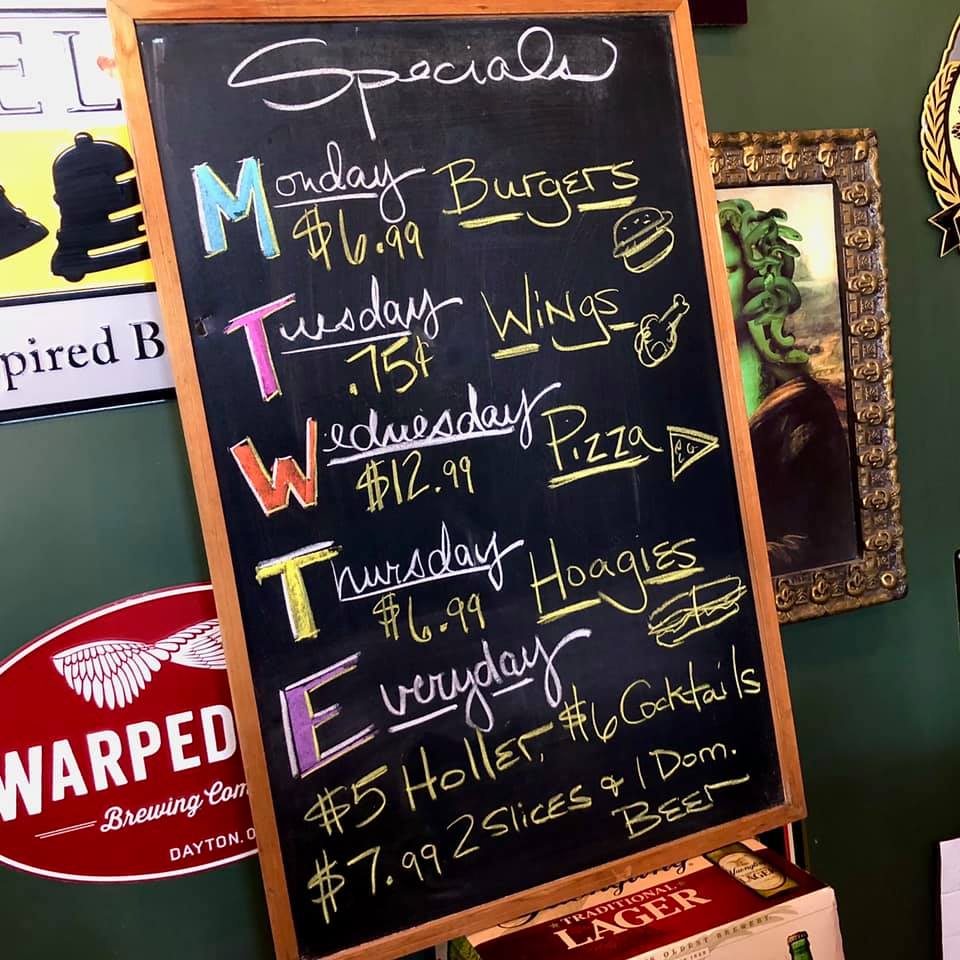 Specials
Monday Burgers
$6.99
Tuesday Wings
.75¢
Wednesday Pizza
$12.99
Thursday Hoagies
$6.99
Everyday
$5 Holler, $6 Cocktails
$7.99 2 Slices & 1 Dom.
Beer
EL
pired B
WARPED
Brewing Com
DAYTON, O
TRADITIONAL
LAGER
OLDEST BREWERY